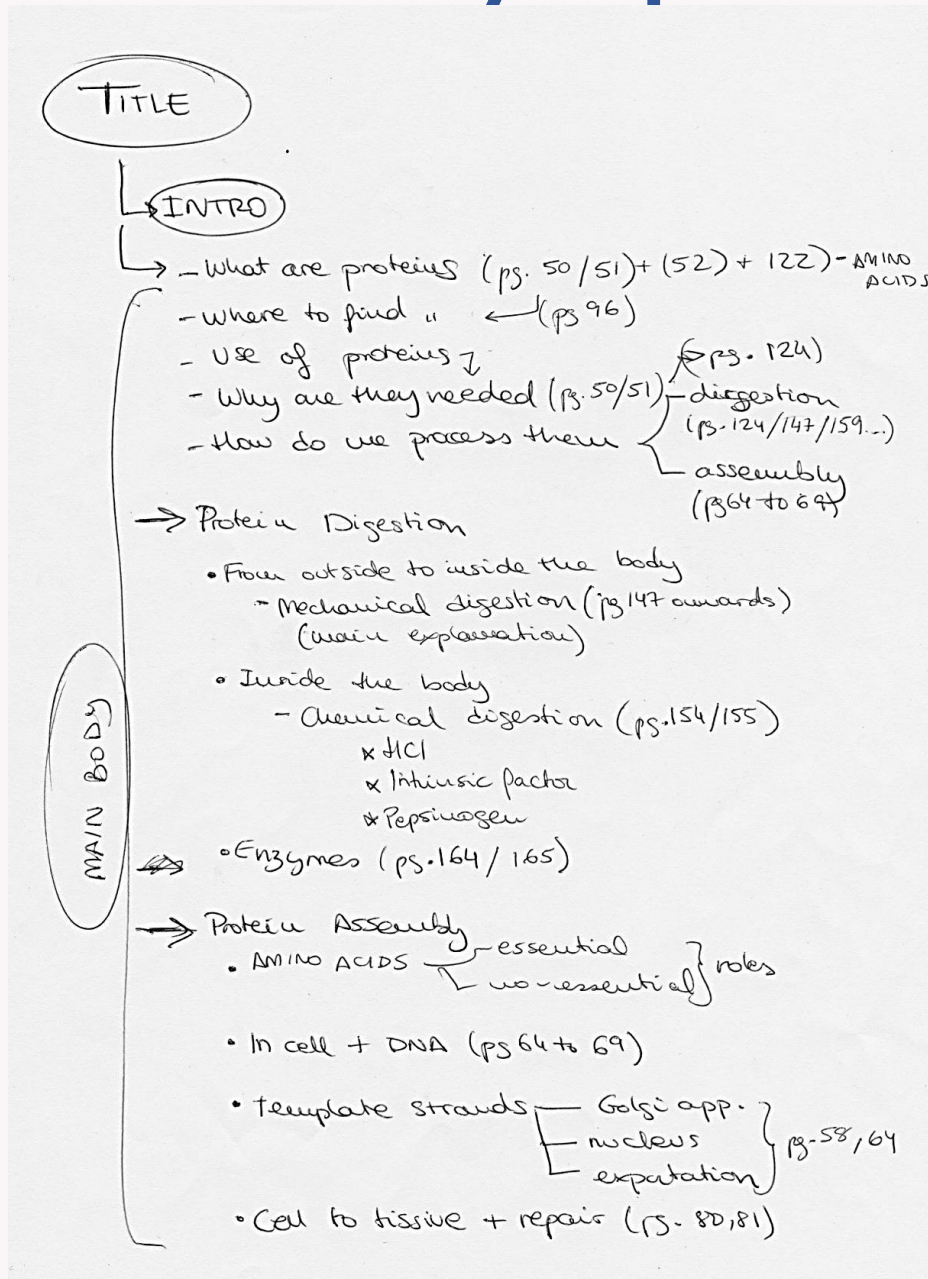 TITLE
INTRO
- What are proteins (pg. 50/51) + (52) + 122) - AMINO ACIDS
- Where to find " ← (pg 96)
- Use of proteins
pg. 124)
- Why are they needed (pg. 50/51)
- digestion
(pg. 124/147/159...)
- How do we process them
assembly
(pg 64 to 69)
→ Protein Digestion
• From outside to inside the body
- Mechanical digestion (pg 147 onwards)
(main explanation)
• Inside the body
- Chemical digestion (pg. 154/155)
* HCl
* Intrinsic factor
* Pepsinogen
• Enzymes (pg. 164 / 165)
MAIN BODY
→ Protein Assembly
• AMINO ACIDS
essential
no-essential } roles
• In cell + DNA (pg 64 to 69)
• template strands
Golgi app.
nucleus
expotation
pg-58, 64
• Cell to tissive + repair (pg. 80,81)